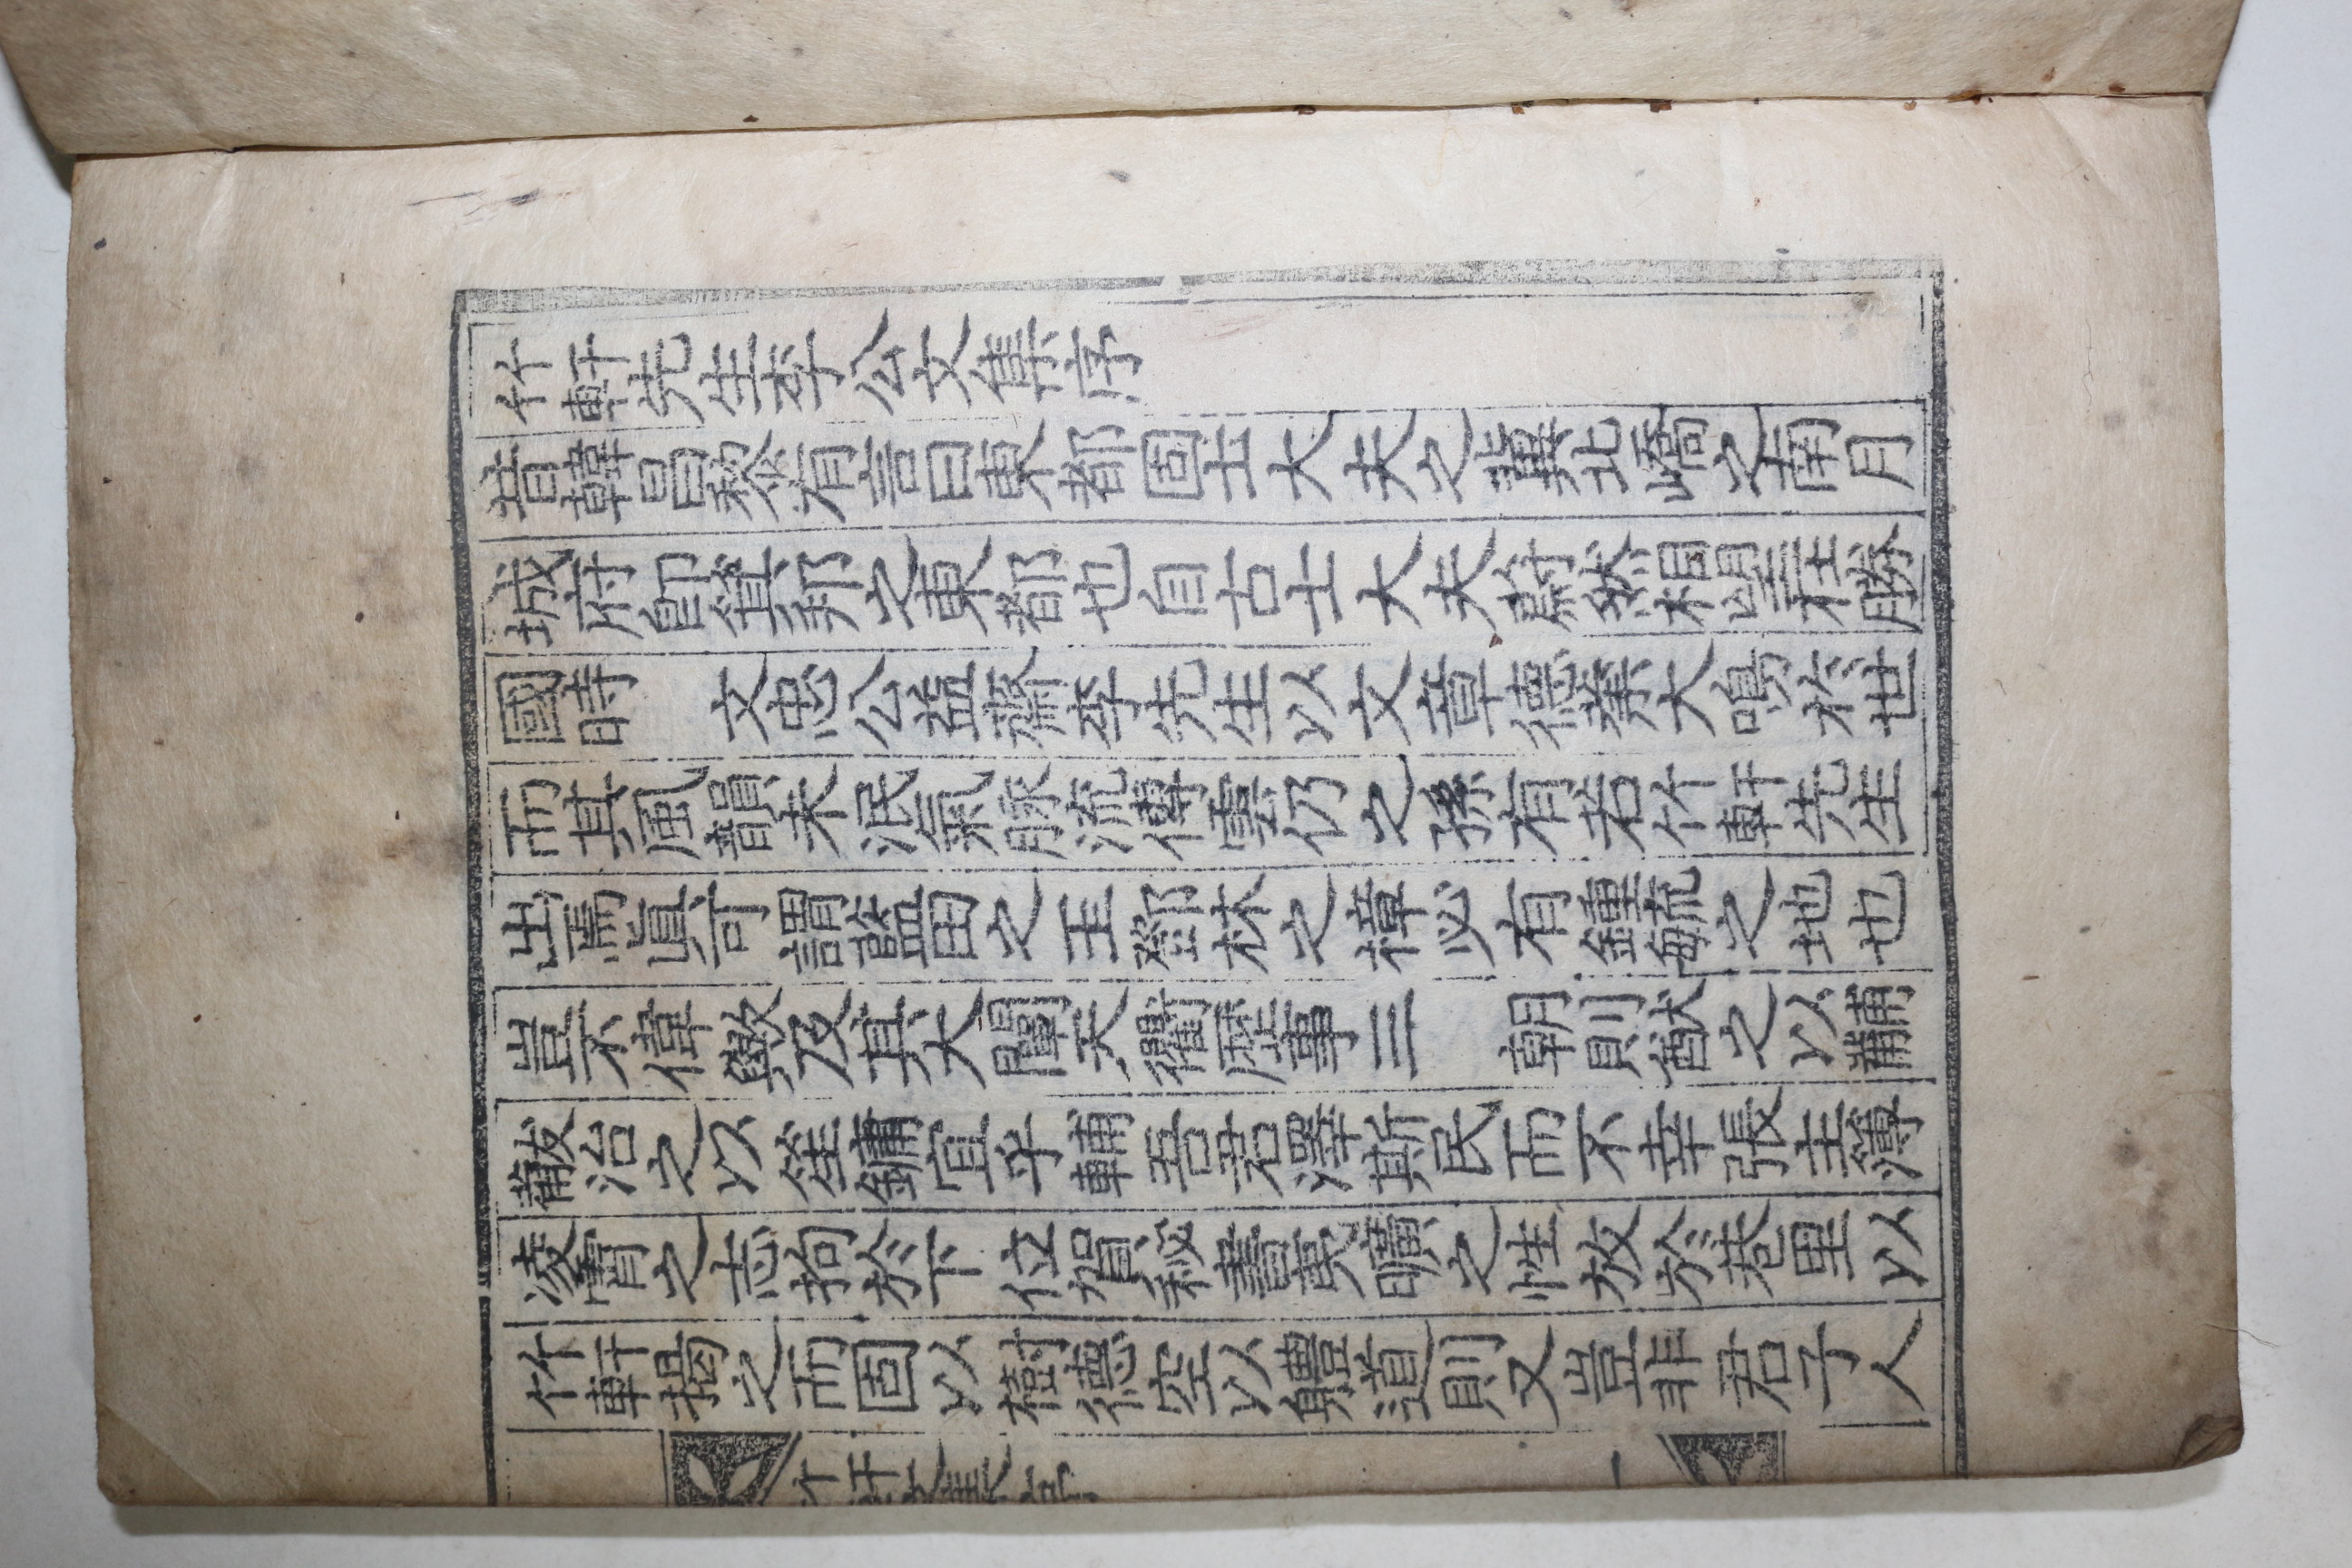 竹軒先生李公文集序
昔韓昌黎有言曰東都固士大夫之冀北嶠之南月
城府卽箕邦之東都也自古士大夫蔚然相望在勝
國時　文忠公益齋李先生以文章德業大鳴於世
而其風韻未泯氣脉流傳雲仍之孫有若竹軒先生
出焉眞可謂藍田之玉鄧林之樟必有鍾毓之地也
豈不偉歟及其大闡天衢歷事三　朝則猷之以黼
黻治之以笙鏞宜乎輔吾君澤斯民而不幸張主簿
凌霄之志拘於下位賀秘書夷曠之性放於巷里以
竹軒揭之而固以樹德空以軆道則又豈非君子人
竹軒文集序
一